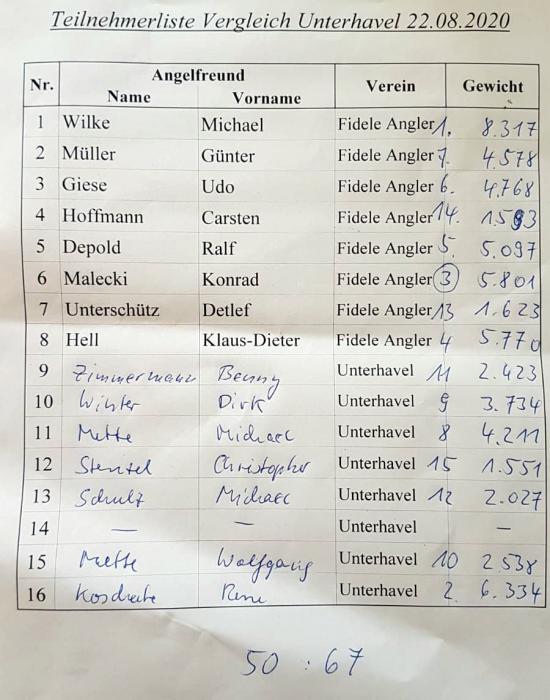 Teilnehmerliste Vergleich Unterhavel 22.08.2020
Nr. Angelfreund Verein Gewicht
Name Vorname
1 Wilke Michael Fidele Angler 1. 8.317
2 Müller Günter Fidele Angler 7. 4.578
3 Giese Udo Fidele Angler 6. 4.768
4 Hoffmann Carsten Fidele Angler 14. 1.593
5 Depold Ralf Fidele Angler 5. 5.097
6 Malecki Konrad Fidele Angler 3 5.801
7 Unterschütz Detlef Fidele Angler 13 1.623
8 Hell Klaus-Dieter Fidele Angler 4 5.770
9 Zimmermann Benny Unterhavel 11 2.423
10 Winter Dirk Unterhavel 9 3.734
11 Mette Michael Unterhavel 8 4.211
12 Stenzel Christopher Unterhavel 15 1.551
13 Schulz Michael Unterhavel 12 2.027
14 — — Unterhavel —
15 Mette Wolfgang Unterhavel 10 2.538
16 Rene Unterhavel 2. 6.334
50 : 67